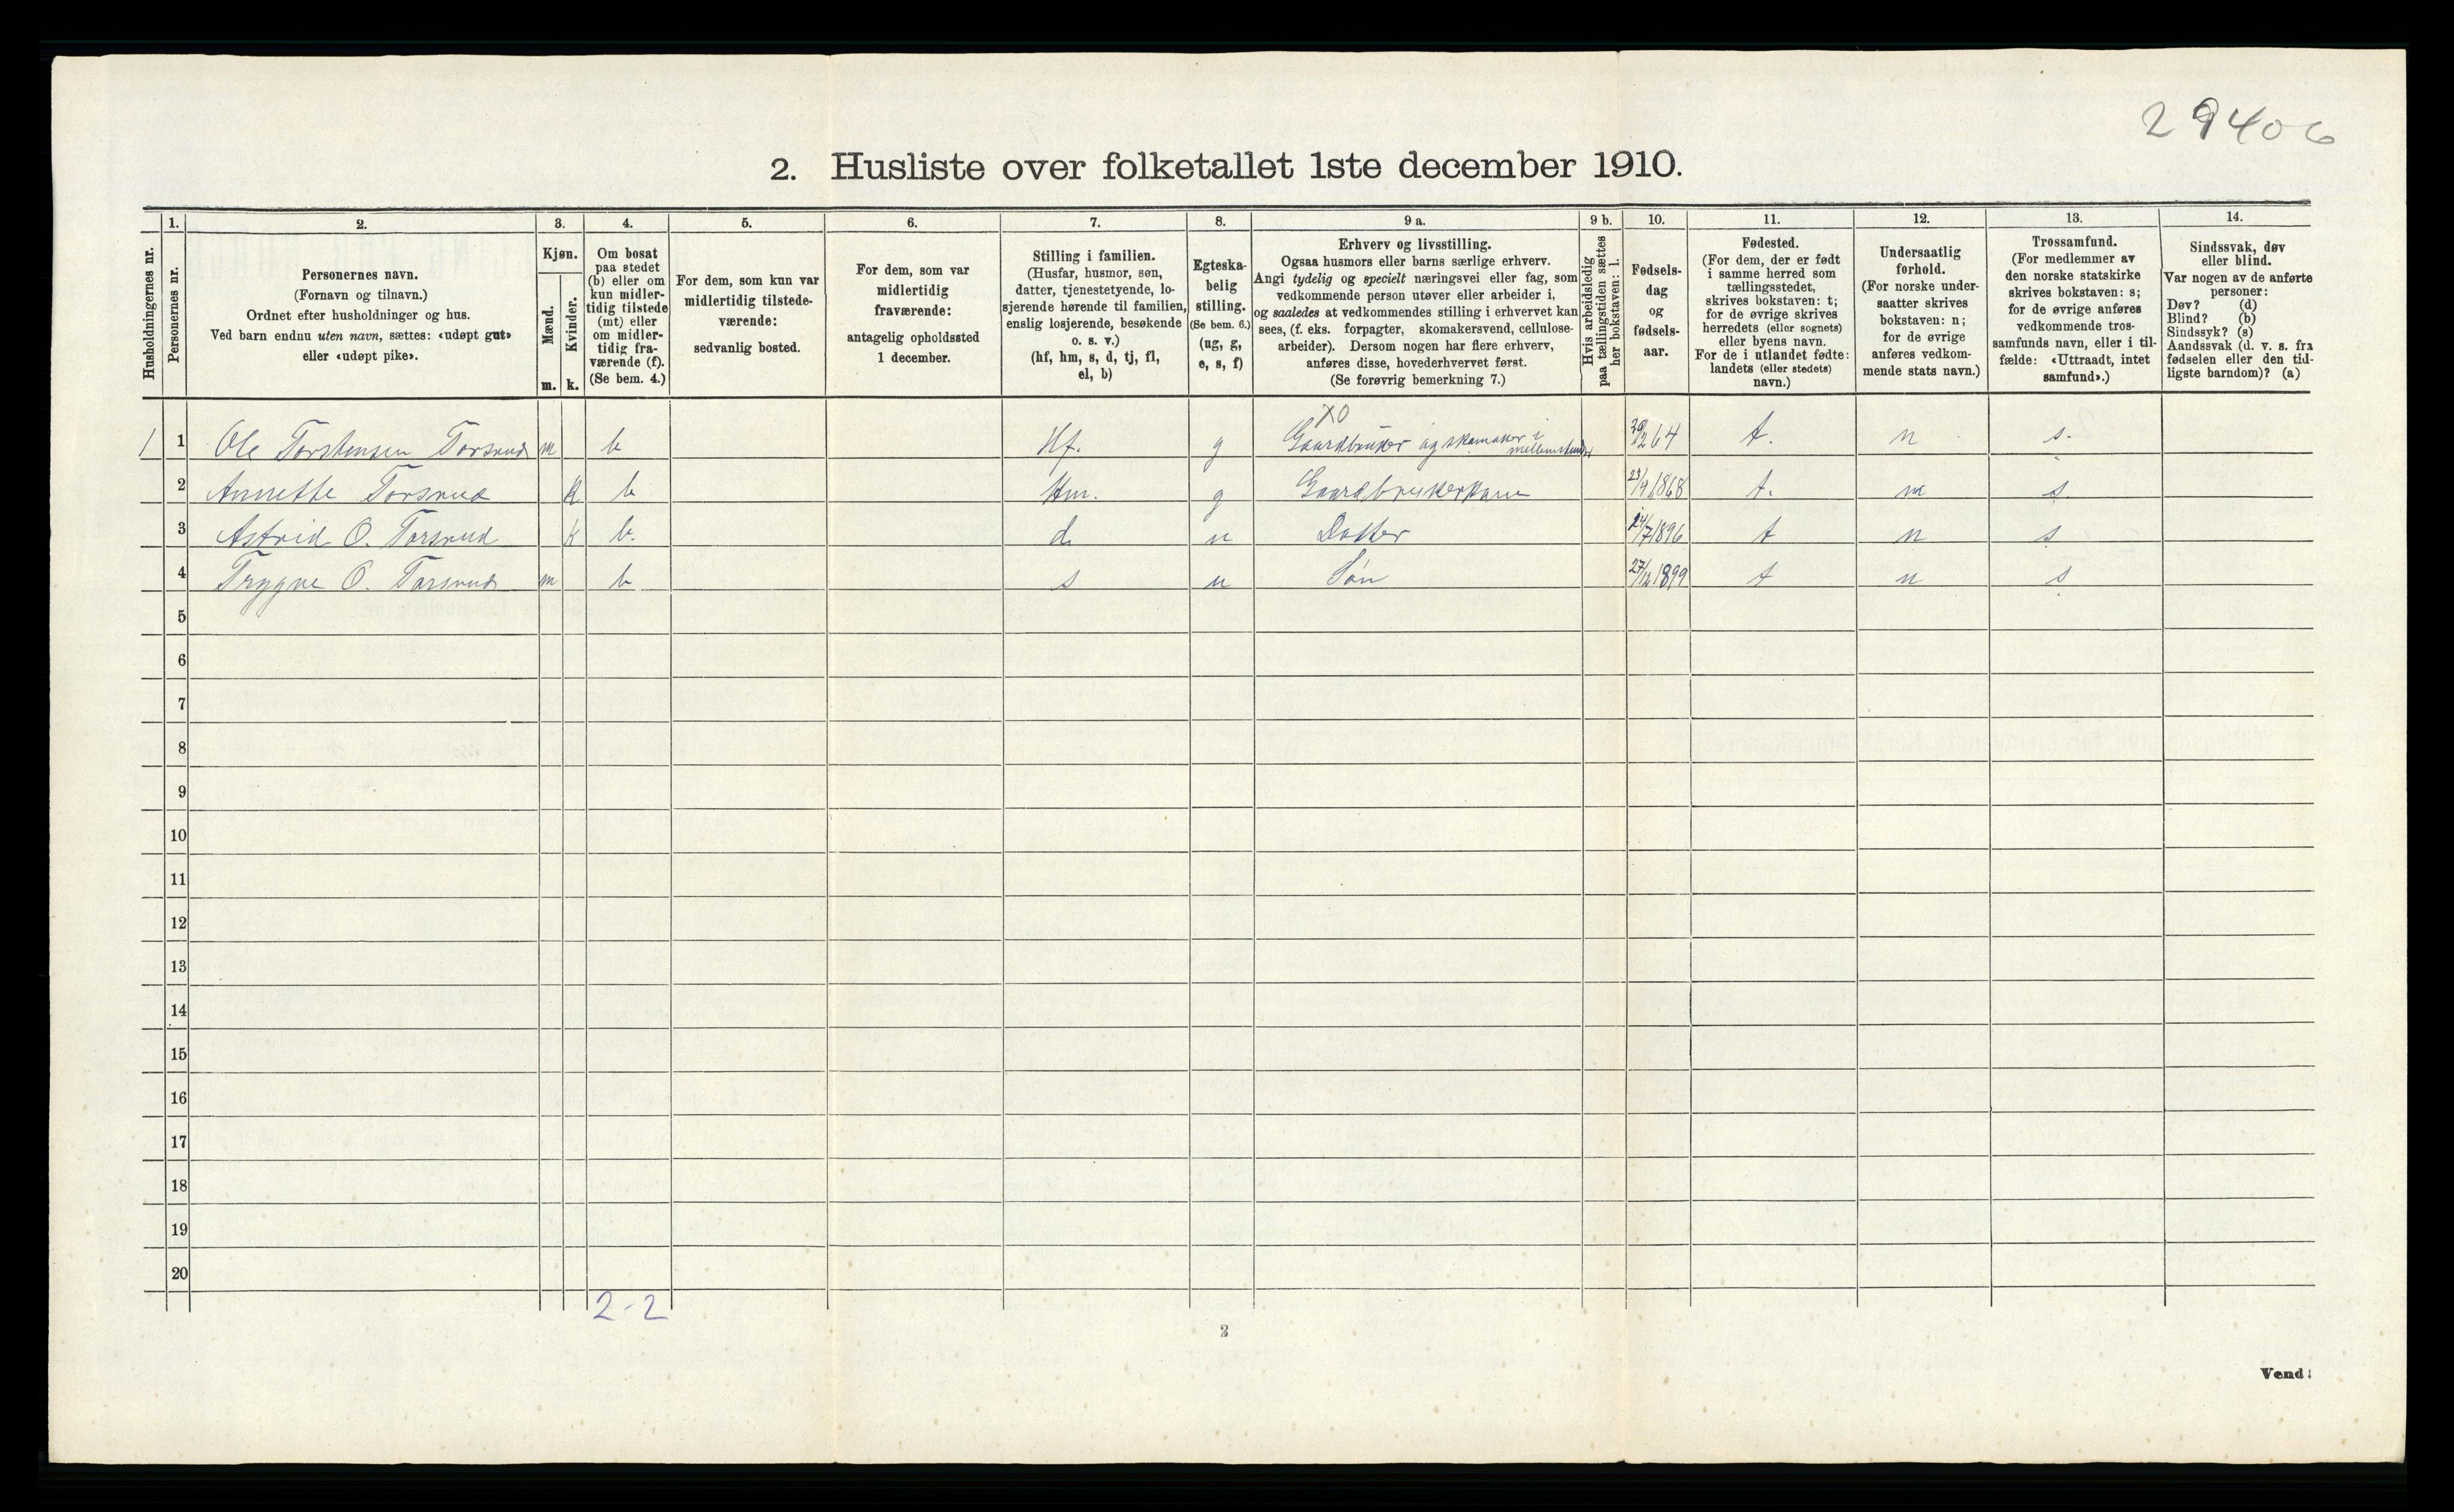 29406
2. Husliste over folketallet 1ste december 1910.
Husholdningernes nr.
1.
Personernes nr.
2.
Personernes navn.
(Fornavn og tilnavn.)
Ordnet efter husholdninger og hus.
Ved barn endnu uten navn, sættes: «udøpt gut»
eller «udøpt pike».
3.
Kjøn.
Mænd.
m.
Kvinder.
k.
4.
Om bosat
paa stedet
(b) eller om
kun midler-
tidig tilstede
(mt) eller
om midler-
tidig fra-
værende (f).
(Se bem. 4.)
5.
For dem, som kun var
midlertidig tilstede-
værende:
sedvanlig bosted.
6.
For dem, som var
midlertidig
fraværende:
antagelig opholdssted
1 december.
7.
Stilling i familien.
(Husfar, husmor, søn,
datter, tjenestetyende, lo-
sjerende hørende til familien,
enslig losjerende, besøkende
o. s. v.)
(hf, hm, s, d, tj, fl,
el, b)
8.
Egteska-
belig
stilling.
(Se bem. 6.)
(ug, g,
e, s, f)
9 a.
Erhverv og livsstilling.
Ogsaa husmors eller barns særlige erhverv.
Angi tydelig og specielt næringsvei eller fag, som
vedkommende person utøver eller arbeider i,
og saaledes at vedkommendes stilling i erhvervet kan
sees, (f. eks. forpagter, skomakersvend, cellulose-
arbeider). Dersom nogen har flere erhverv,
anføres disse, hovederhvervet først.
(Se forøvrig bemerkning 7.)
9 b.
Hvis arbeidsledig
paa tællingstiden sættes
her bokstaven: l.
10.
Fødsels-
dag
og
fødsels-
aar.
11.
Fødested.
(For dem, der er født
i samme herred som
tællingsstedet,
skrives bokstaven: t;
for de øvrige skrives
herredets (eller sognets)
eller byens navn.
For de i utlandet fødte:
landets (eller stedets)
navn.)
12.
Undersaatlig
forhold.
(For norske under-
saatter skrives
bokstaven: n;
for de øvrige
anføres vedkom-
mende stats navn.)
13.
Trossamfund.
(For medlemmer av
den norske statskirke
skrives bokstaven: s;
for de øvrige anføres
vedkommende tros-
samfunds navn, eller i til-
fælde: «Uttraadt, intet
samfund».)
14.
Sindssvak, døv
eller blind.
Var nogen av de anførte
personer:
Døv? (d)
Blind? (b)
Sindssyk? (s)
Aandssvak (d. v. s. fra
fødselen eller den tid-
ligste barndom)? (a)
X0
1 1 Ole Torstensen Torsrud m b Hf. g Gaardbruker og skomaker i mellemstunder 64 t. n s.
2 Annette Torsrud k b Hm. g Gaardbrukerkone 23/4 1868 t. n s
3 Astrid O. Torsrud k b. d u Datter 24/7 1896 t n s
4 Trygve O. Torsrud m b s u Søn 27/12 1899 t n s
5
6
7
8
9
10
11
12
13
14
15
16
17
18
19
20
2-2
2
Vend!